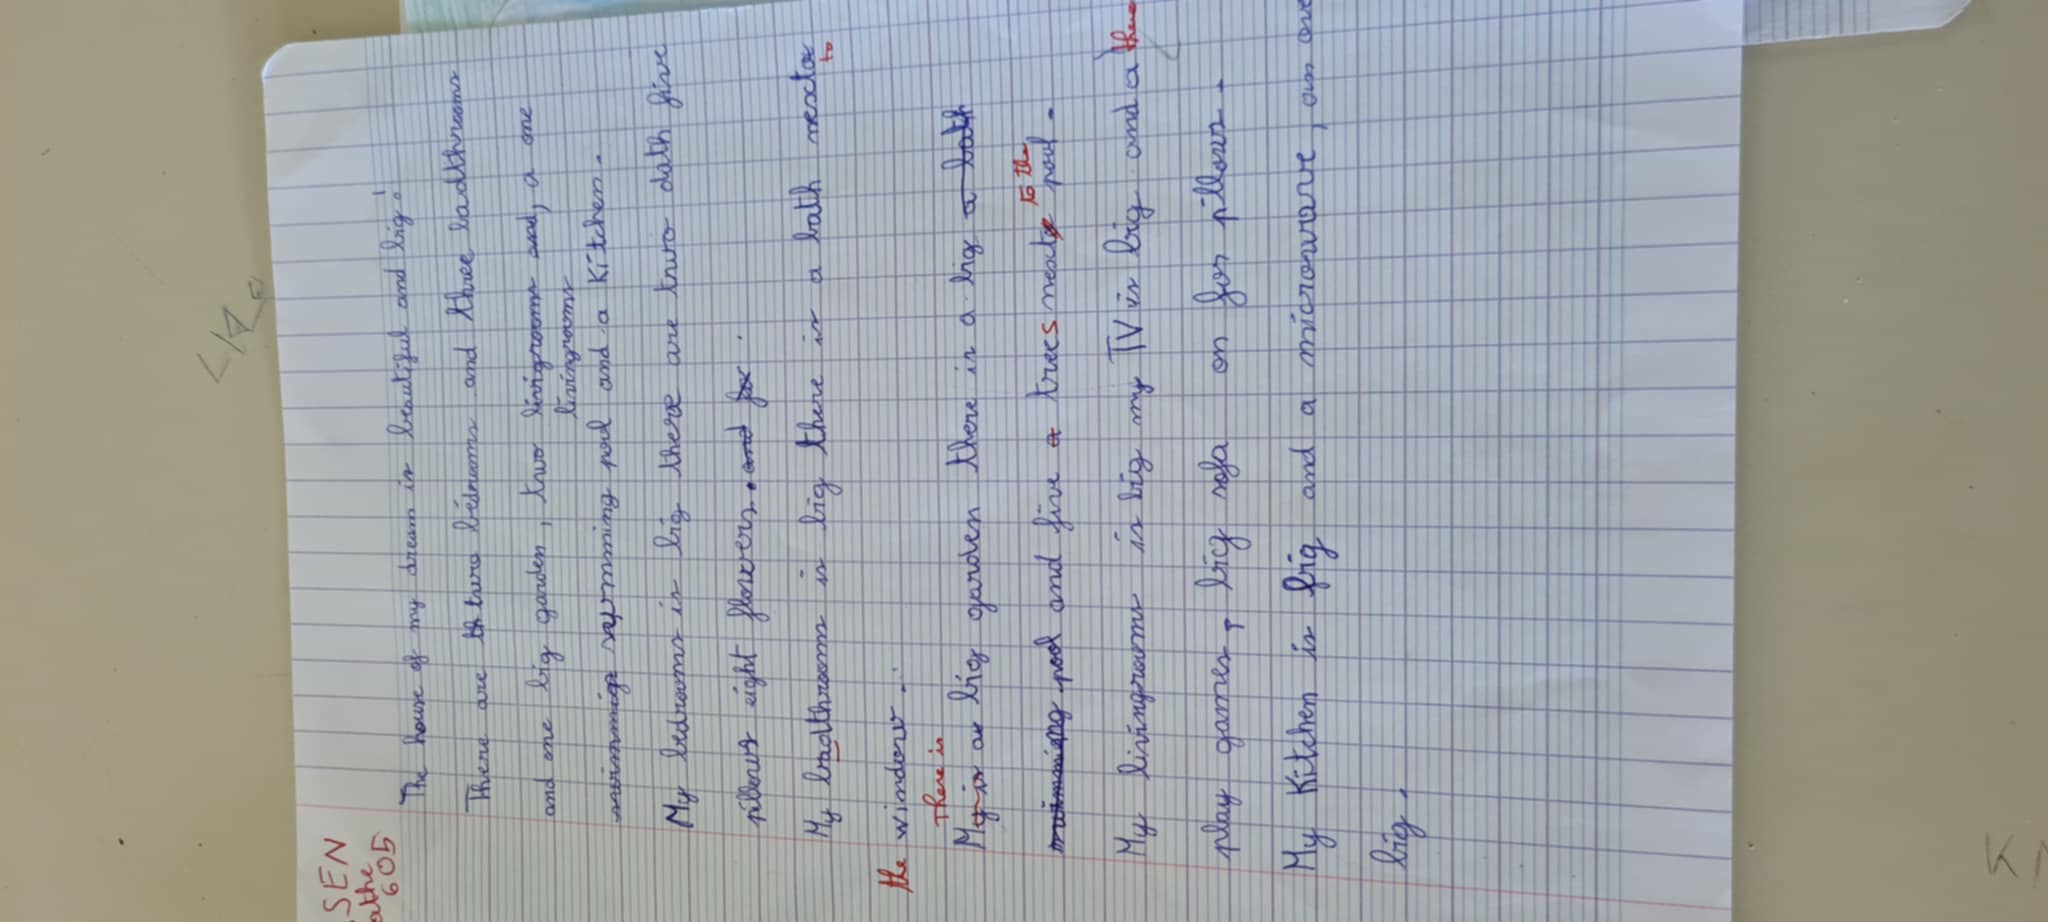 SEN
605
The house of my dream is beautiful and big!
There are two bedrooms and three badthrooms
and one big garden, two livigrooms and, a one
livingrooms
swimming pool and a Kitchen.
My bedrooms is big there are two dath five
pillows eight flowers. and for.
My badthrooms is big there is a bath nextox
to
the windows.
There is
My is a big garden there is a big a bath
pool and five a trees next to the pool.
My livingrooms is big my TV is big and a there
play games, big sofa on for pillows.
My Kitchen is frig and a microware, an ove
big.